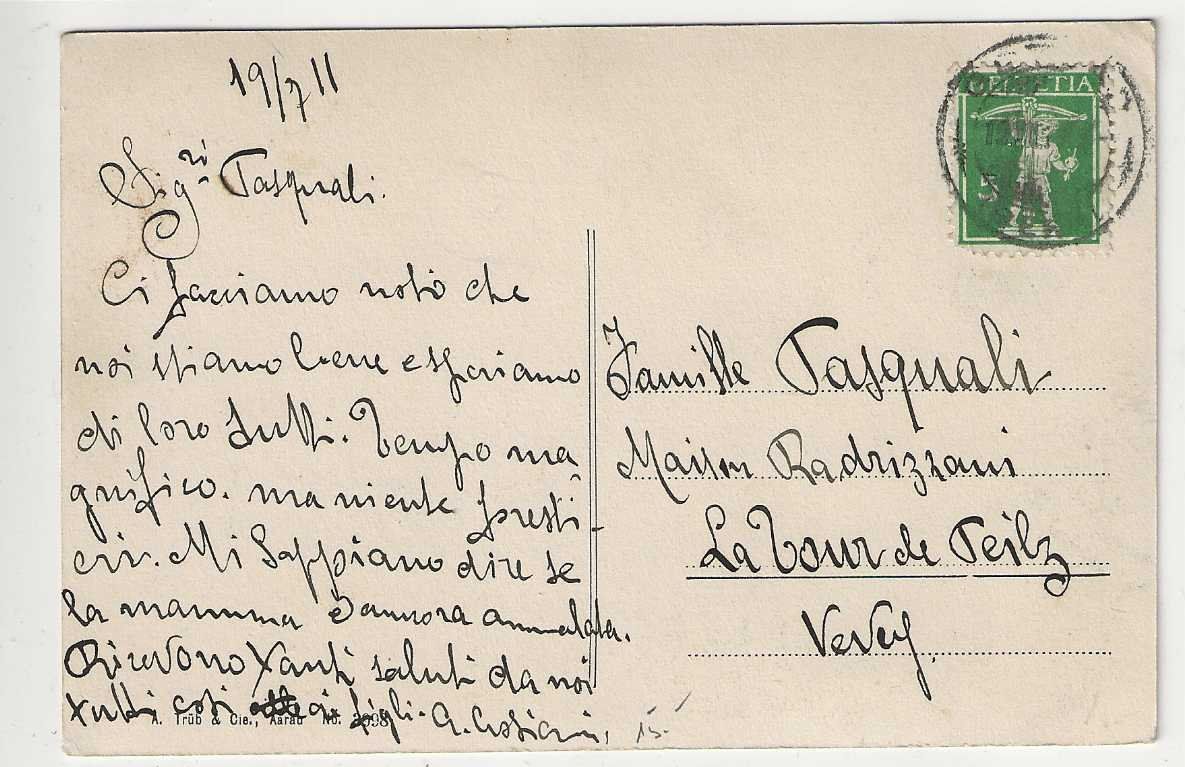 19/7 11
Sigri Pasquali.
Ci facciamo noto che
noi stiamo bene e speriamo
di loro tutti. Tempo ma
gnifico. ma niente foresti-
eri. Mi sappiano dire se
la mamma è ancora ammalata.
Ricevono tanti saluti da noi
tutti così ai figli.
A. Trüb & Cie., Aarau No.
15.
HELVETIA
5
Famille Pasquali
Maison Radrizzani
La Tour de Peilz
Vevey